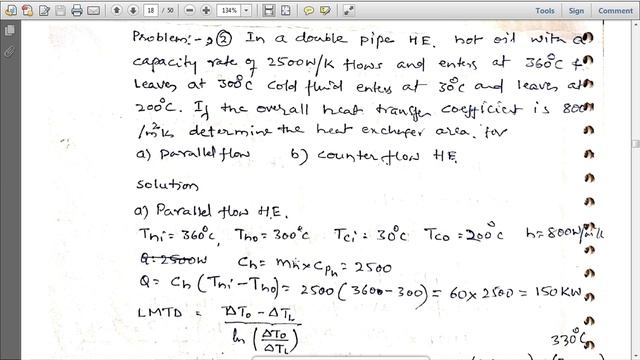 18 / 50
134%
Tools
Sign
Comment
Problem:- ② In a double pipe HE. hot oil with a
capacity rate of 2500W/K flows and enters at 360°C &
leaves at 300°C cold fluid enters at 30°C and leaves at
200°C. If the overall heat transfer coefficient is 800
/m²k determine the heat exchager area. for
a) parallel flow b) counter flow HE.
Solution
a) Parallel flow H.E.
Thi = 360°C, Tho = 300°C Tci = 30°C Tco = 200°C h = 800W/m²k
Q = 2500W Ch = mh × Cph = 2500
Q = Ch (Thi - Tho) = 2500 (3600 - 300) = 60 × 2500 = 150 KW
LMTD = ΔTo - ΔTL
ln (ΔTo
ΔTL)
330°C